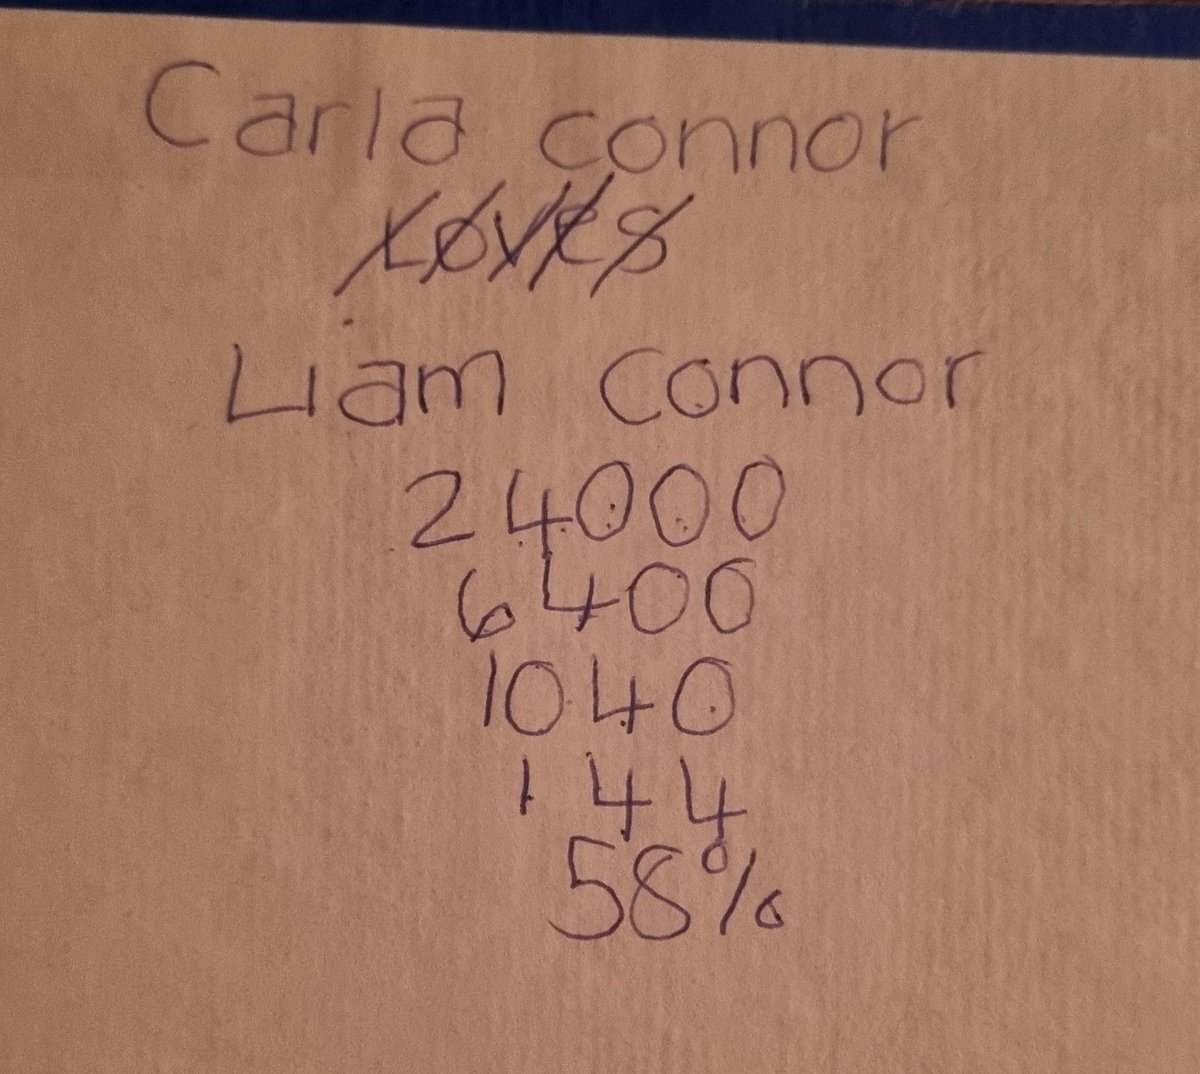 Carla connor
Loves
Liam connor
24000
6400
1040
144
58%